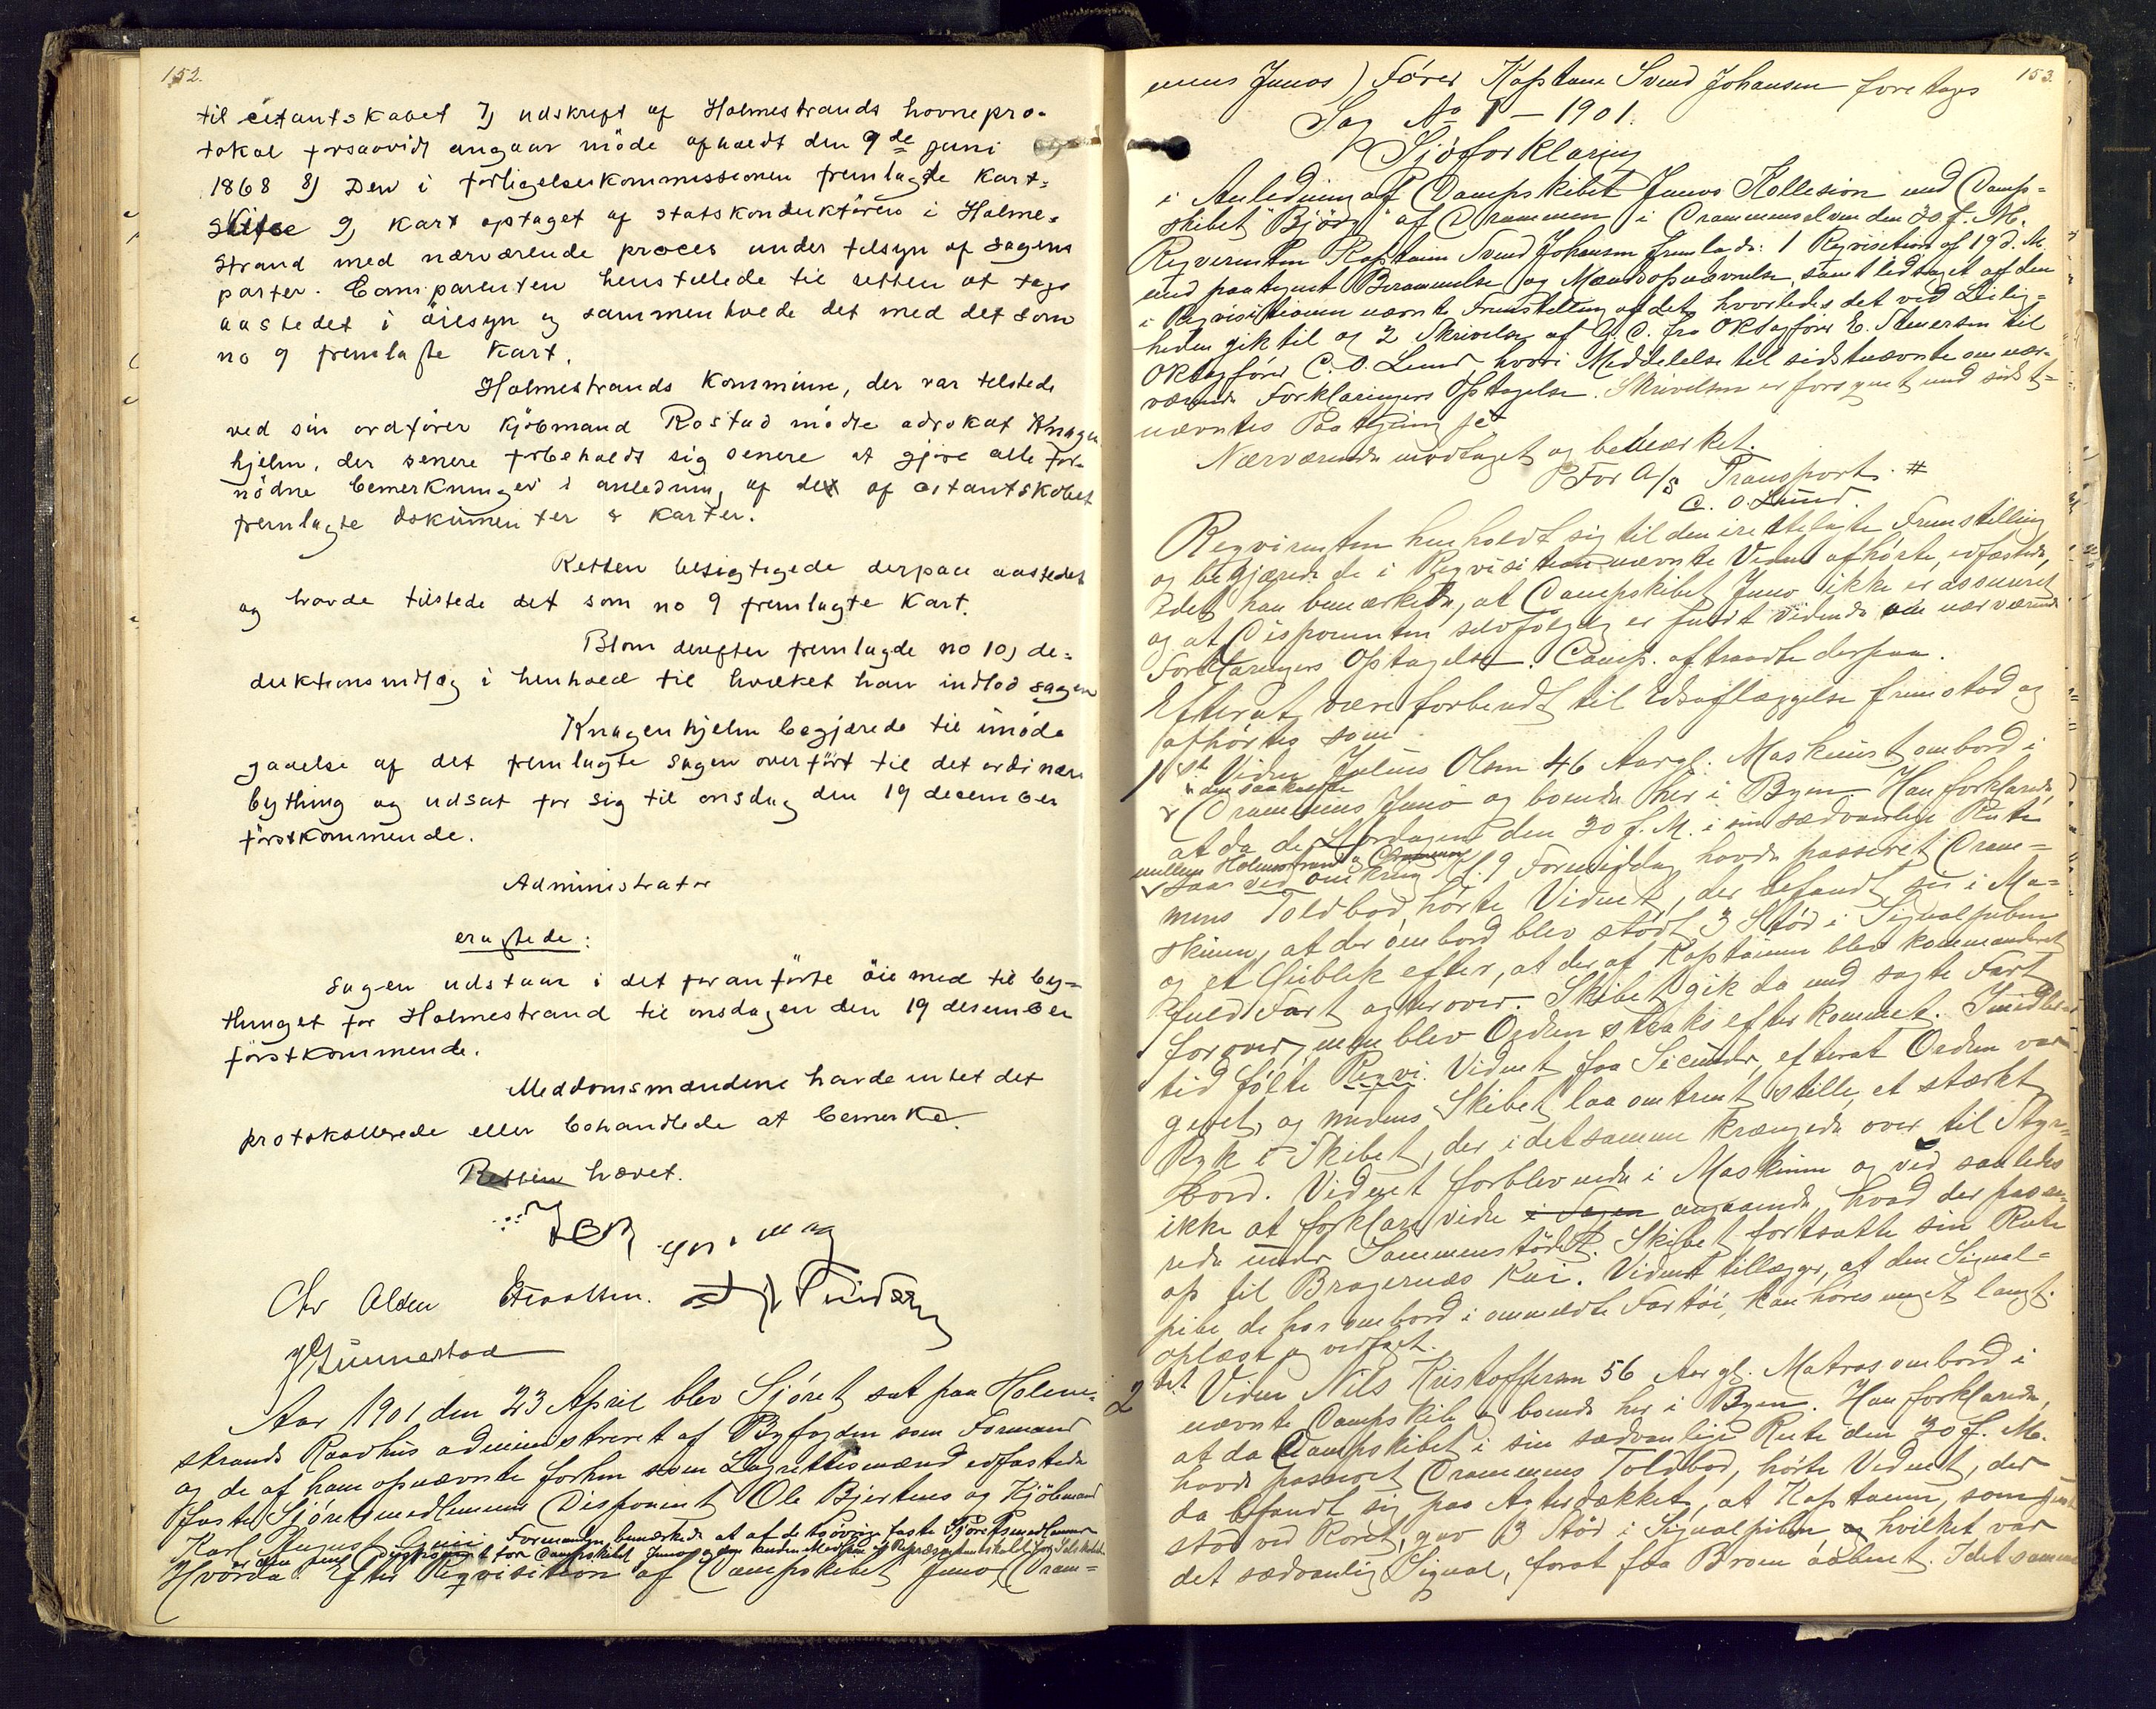 152.
til citantskabet 7) udskrift af Holmestrands havnepro-
tokol forsaavidt angaar möde afholdt den 9de juni
1868 8) Den i forligelseskommissionen fremlagte kart-
skitse 9) kart optaget af statskonduktören i Holme-
strand med nærværende proces under tilsyn af sagens
parter. Comparenten henstillede til retten at tage
aastedet i öiesyn og sammenholde det med det som
no 9 fremlagte kart.
Holmestrands kommune, der var tilstede
ved sin ordförer kjöbmand Rostad mödte advokat Knagen
hjelm, der senere forbeholdt sig senere at gjöre alle for-
nödne bemerkninger i anledning af det af citantskabet
fremlagte dokumenter & karter.
Retten besigtigede derpaa aastedet
og havde tilstede det som no 9 fremlagte kart.
Blom derefter fremlagde no 10) de-
duktionsindlæg i henhold til hvilket han indlod sagen
Knagenhjelm begjærede til imöde
gaaelse af det fremlagte sagen overfört til det ordinære
bything og udsat for sig til onsdag den 19 december
förstkommende.
Administrator
eragtede:
Sagen udstaar i det foranförte öiemed til by-
thinget for Holmestrand til onsdagen den 19 desember
förstkommende.
Meddomsmændene havde intet det
protokollerede eller behandlede at bemerke.
Retten hævet.
Chr Olsen
J Gunnestad
Aar 1901 den 23 April blev Sjöret sat paa Holme-
strands Raadhus administreret af Byfogden som Formand
og de af ham opnævnte forhen som Lagrettesmænd edfæstede
faste Sjöretsmedlemmer Disponent Ole Bjertnes og Kjöbmand
Karl August Formanden bemærkede at af de to övrige faste Sjöretsmedlemmer
er den ene Disponent for Dampskibet Juno og den anden Medlem af Repræsentantskabet for Selskabet
Hvorda Efter Reqvisition af Dampskibet Juno (Dram-
153.
mens Junos) Förer Kaptain Svend Johansen foretages
Sag No 1 – 1901.
Sjöforklaring
i Anledning af Dampskibet Junos Kollision med Damp-
skibet "Björg" af Drammen i Drammenselven den 30 f. M.
Reqvirenten Kaptain Svend Johansen fremlagde: 1 Reqvisition af 19 d. M.
med paategnet Berammelse og Mændsopnævnelse, samt ledsaget af den
i Reqvisitionen nævnte Fremstilling af det, hvorledes det ved Leilig-
heden gik til og 2 Skrivelse af G. D. fra Oktagförer E. Stenersen til
Oktagförer C. O. Lund, hvori Meddelelse til sidstnævnte om nær-
værende Forklarings Optagelse. Skrivelsen er forsynet med sidst-
nævntes Paategning
Nærværende modtaget og bemærket.
For A/S Transport. #
C. O. Lund
Reqvirenten henholdt sig til den irettelagte Fremstilling
og begjærede de i Reqvisitionen nævnte Vidner afhörte, edfæstede,
idet han bemærkede, at Dampskibet Juno ikke er assureret
og at Disponenten selvfölgelig er fuldt vidende om nærværende
Forklarings Optagelse. Comp. aftraadte derpaa.
Efterat være forberedt til Edsaflæggelse fremstod og
afhörtes som
1st Vidne Julius Olsen 46 Aar gl. Maskinist ombord i
den saakaldte
Drammens Juno og boende her i Byen. Han forklarede,
at da de Lördagen den 30 f. M. i sin sædvanlige Rute
mellem Holmestrand og Drammen
saa ved omkring Kl. 9 Formiddag havde passeret Dram-
mens Toldbod, hörte Vidnet, der befandt sig i Ma-
skinen, at der ombord blev stödt 3 Stöd i Signalpiben
og et Öieblik efter, at der af Kaptainen blev kommanderet
fuld Fart agterover. Skibet gik da med sagte Fart
forover, men blev Orden straks efterkommet. Imidler-
tid fölte Reqvi. Vidnet faa Secunder, efterat Orden var
givet, og medens Skibet laa omtrent stille, et stærkt
Ryk i Skibet, der i det samme krængede over til Styr-
bord. Vidnet forblev nede i Maskinen og ved saaledes
ikke at forklare videre i Sagen angaaende, hvad der passe-
rede under Sammenstödet. Skibet fortsatte sin Rute
op til Bragernæs Kai. Vidnet tillægger, at den Signal-
pibe, de har ombord i ommeldte Fartöi, kan höres meget langt.
Oplæst og vedtaget.
2det Vidne Nils Kristoffersen 56 Aar gl. Matros ombord i
nævnte Dampskib og boende her i Byen. Han forklarede,
at da Dampskibet i sin sædvanlige Rute den 30 f. M.
havde passeret Drammens Toldbod, hörte Vidnet, der
da befandt sig paa Agterdækket, at Kaptainen, som
stod ved Roret, gav 3 Stöd i Signalpiben, og hvilket var
det sædvanlig Signal, forat faa Broen aabnet. I det samme